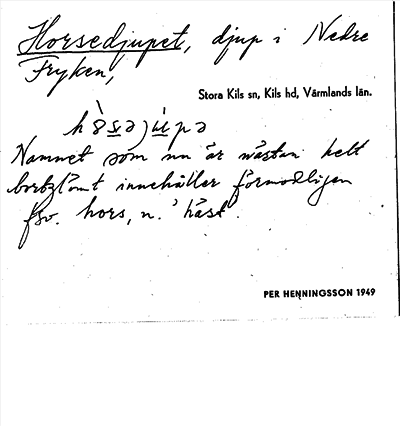 Horsedjupet, djup i Nedre
Fryken,
Stora Kils sn, Kils hd, Värmlands län.
Namnet som nu är nästan helt
bortglömt innehåller förmodligen
fsv. hors, n. 'häst'.
PER HENNINGSSON 1949